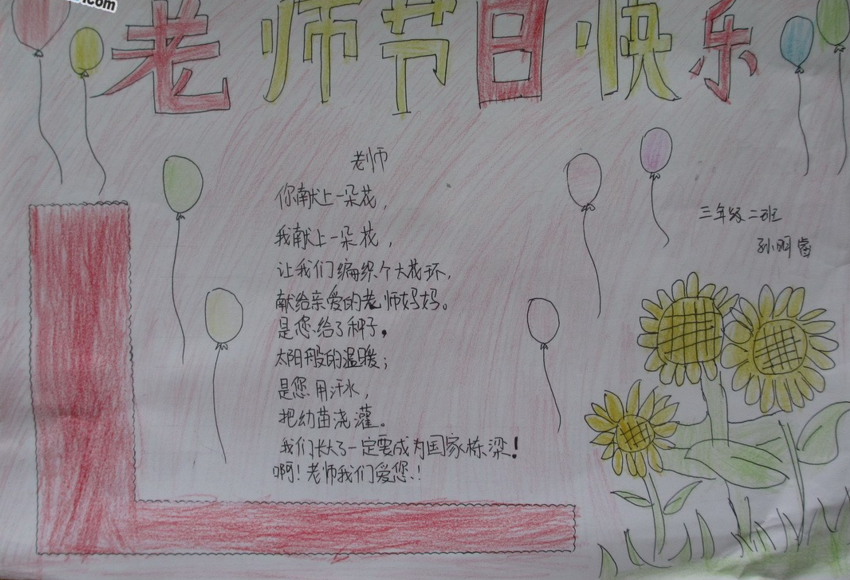 老师节日快乐
老师
你献上一朵花，
我献上一朵花，
让我们编织个大花环，
献给亲爱的老师妈妈。
是您给了种子，
太阳般的温暖；
是您用汗水，
把幼苗浇灌。
我们长大了一定要成为国家栋梁！
啊！老师我们爱您！
三年级二班
孙明